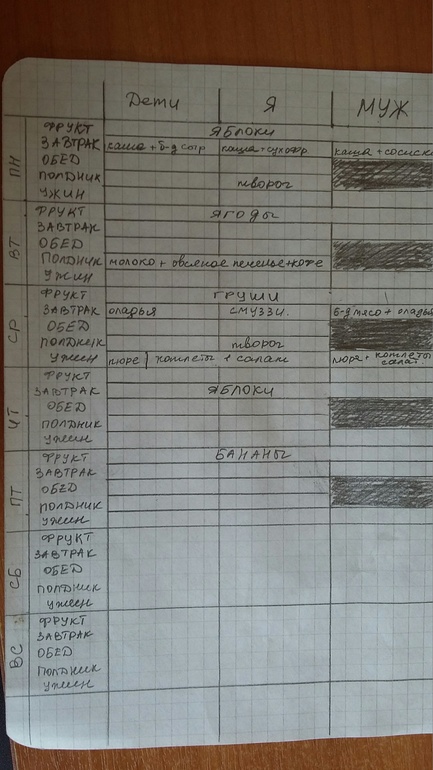 Дети Я МУЖ
ПН
ФРУКТ ЯБЛОКИ
ЗАВТРАК каша + б-д сыр каша + сухофр каша + сосиск
ОБЕД
ПОЛДНИК творог
УЖИН
ВТ
ФРУКТ ЯГОДЫ
ЗАВТРАК
ОБЕД
ПОЛДНИК молоко + овсяное печенье + кофе
УЖИН
СР
ФРУКТ ГРУШИ
ЗАВТРАК оладья смуззи. б-д мясо + оладьи
ОБЕД
ПОЛДНИК творог
УЖИН пюре | котлеты + салат пюре + котлеты салат
ЧТ
ФРУКТ
ЗАВТРАК ЯБЛОКИ
ОБЕД
ПОЛДНИК
УЖИН
ПТ
ФРУКТ БАНАНЫ
ЗАВТРАК
ОБЕД
ПОЛДНИК
УЖИН
СБ
ФРУКТ
ЗАВТРАК
ОБЕД
ПОЛДНИК
УЖИН
ВС
ФРУКТ
ЗАВТРАК
ОБЕД
ПОЛДНИК
УЖИН